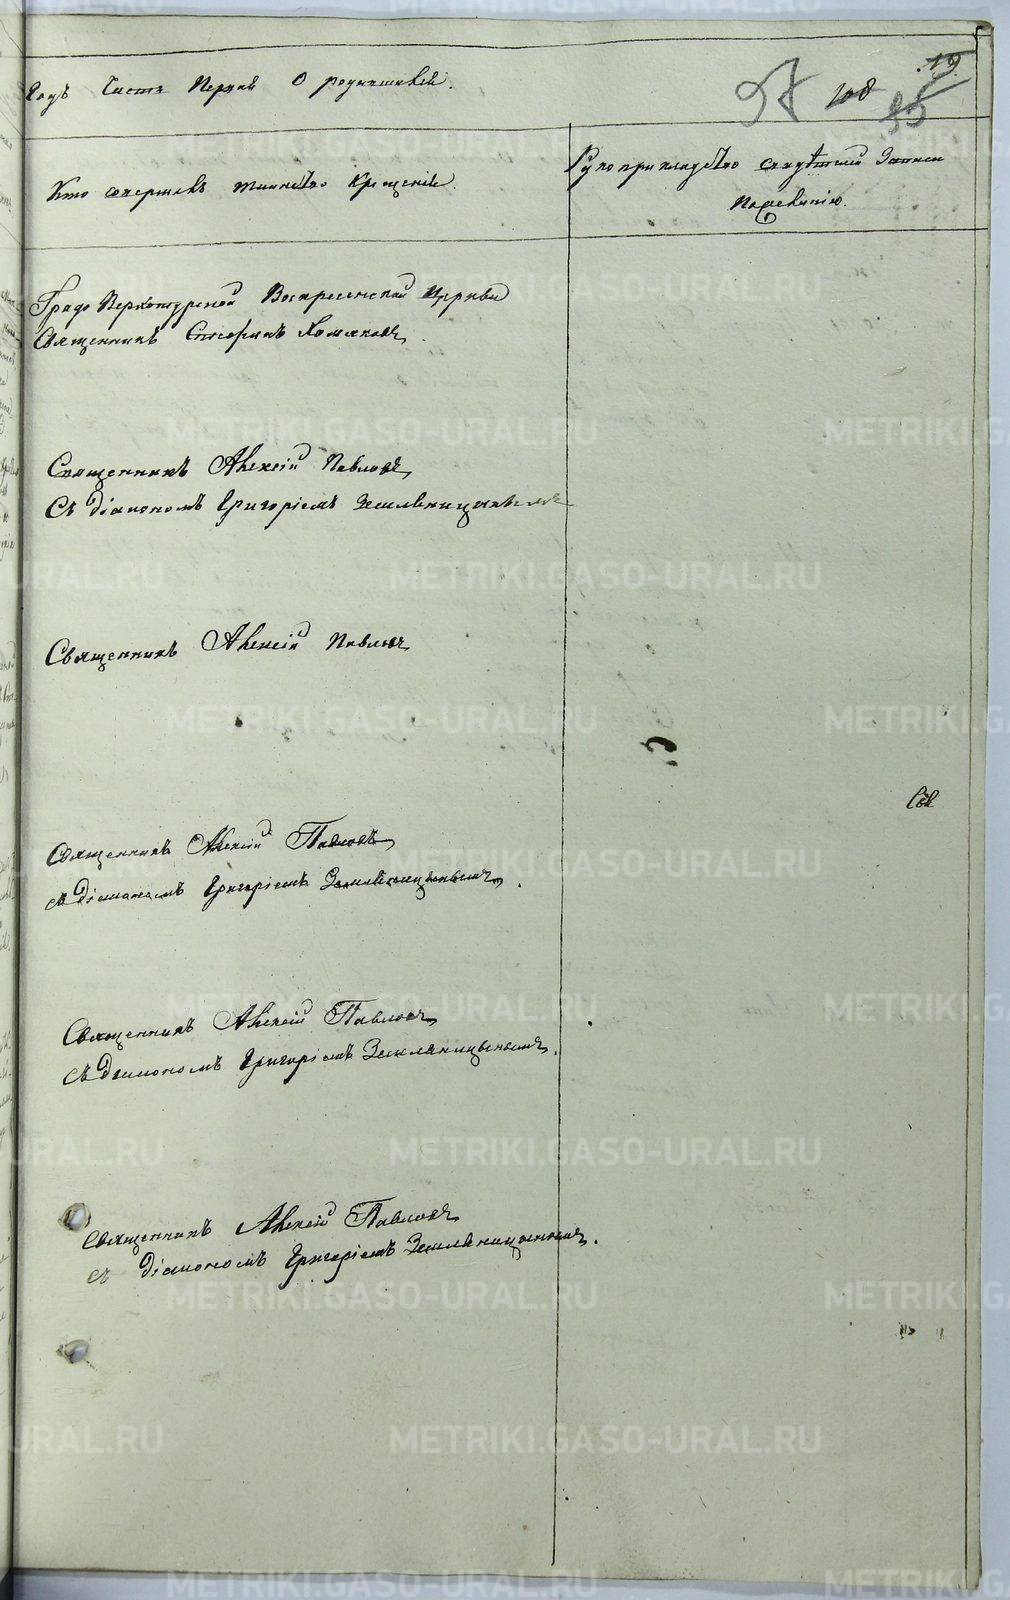 Годъ Часть Первая О родившихся.
108
19.
95
Кто совершалъ таинство Крещенія.
Рукоприкладство свидѣтелей записи
по желанію.
Градо Верхотурской Воскресенской Церкви
Священникъ Хомяковъ.
Священникъ Алексій Павловъ
Съ діакономъ Григоріемъ Земляницынымъ
Священникъ Алексій Павловъ
Священникъ Алексій Павловъ
съ діакономъ Григоріемъ Земляницынымъ.
Священникъ Алексій Павловъ
съ діакономъ Григоріемъ Земляницынымъ.
Священникъ Алексій Павловъ
съ діакономъ Григоріемъ Земляницынымъ.
METRIKI.GASO-URAL.RU